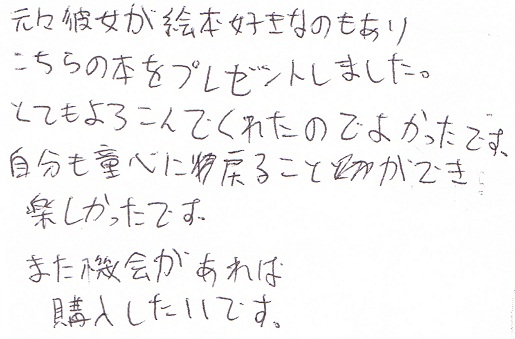 元々彼女が絵本好きなのもあり
こちらの本をプレゼントしました。
とてもよろこんでくれたのでよかったです。
自分も童心に戻ることができ
楽しかったです。
また機会があれば
購入したいです。